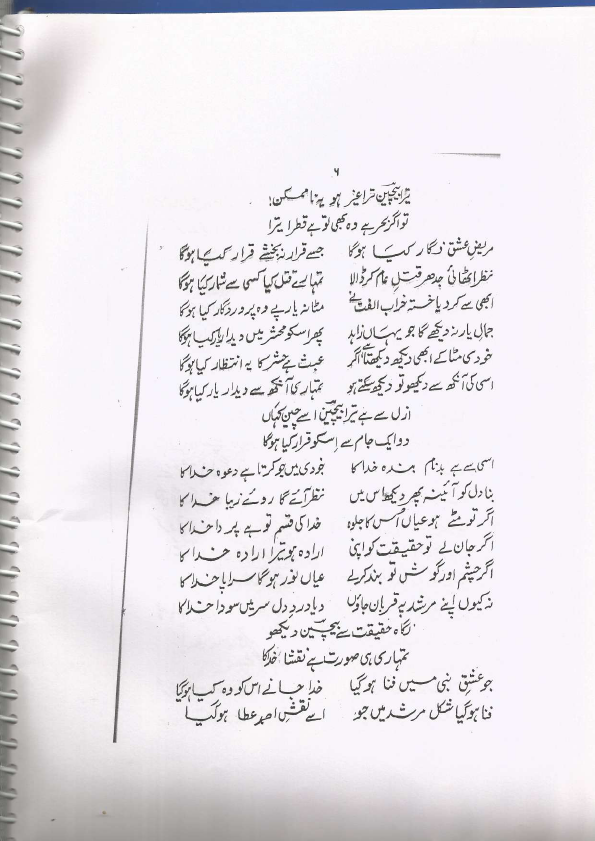 ۶
تیرا بیچین تیرا غیر ہو یہ نا ممکن!
تو اگر بحر ہے وہ بھی تو ہے قطرا یترا
مریضِ عشق نگار کیا ہوگا جسے قرار نہ بخشے قرار کیا ہوگا
نظر اٹھائی جدھر قتلِ عام کر ڈالا تمہارے قتل کیا کسی سے شمار کیا ہوگا
ابھی سے کر دیا خستہ خراب الفت نے مٹانہ یار پے وہ پروردگار کیا ہوگا
جمال یار نہ دیکھے گا جو یہاں زاہد پھر اسکو محشر میں دیدار یار کیا ہوگا
خودی مٹا کے ابھی دیکھ دیکھتا ہے اگر عبث ہے حشر کا یہ انتظار کیا ہوگا
اسی کی آنکھ سے دیکھو تو دیکھ سکتے ہو تمہاری آنکھ سے دیدار یار کیا ہوگا
ازل سے ہے ترا بیچین اسے چین کہاں
دو ایک جام سے اسکو قرار کیا ہوگا
اسی سے ہے بدنام بندہ خدا کا خودی میں جو کرتا ہے دعوہ خدا کا
بنا دل کو آئینہ پھر دیکھ اس میں نظر آئے گا روئے زیبا خدا کا
اگر تو مٹے ہو عیاں اُس کا جلوہ خدا کی قسم تو ہے پردا خدا کا
اگر جان لے تو حقیقت کو اپنی ارادہ ہو تیرا ارادہ خدا کا
اگر چشم اور گوش تو بند کرلے عیاں نور ہوگا سراپا خدا کا
نہ کیوں اپنے مرشد پہ قربان جاؤں دیا دردِ دل سر میں سودا خدا کا
نگاہ حقیقت سے بیچین دیکھو
تمہاری ہی صورت ہے نقشا خدا کا
جو عشقِ نبی میں فنا ہو گیا خدا جانے اس کو وہ کیا ہو گیا
فنا ہو گیا شکل مرشد میں جو اسے نقشِ احمد عطا ہو گیا